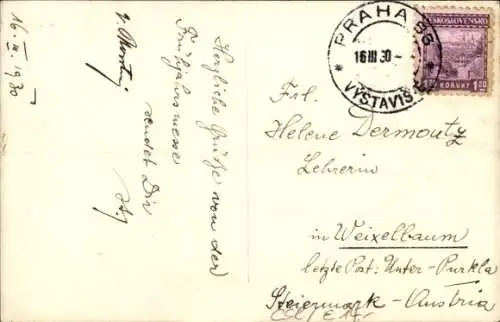 16. III. 1930
Herzliche Grüße von der
Frühjahrsmesse
sendet Dir
PRAHA 86
16 III 30
VÝSTAVIŠ
ČESKOSLOVENSKO
KORUNY 1.20
Frl.
Helene Dermoutz
Lehrerin
in Weixelbaum
letzte Post: Unter-Purkla
Steiermark-Austria